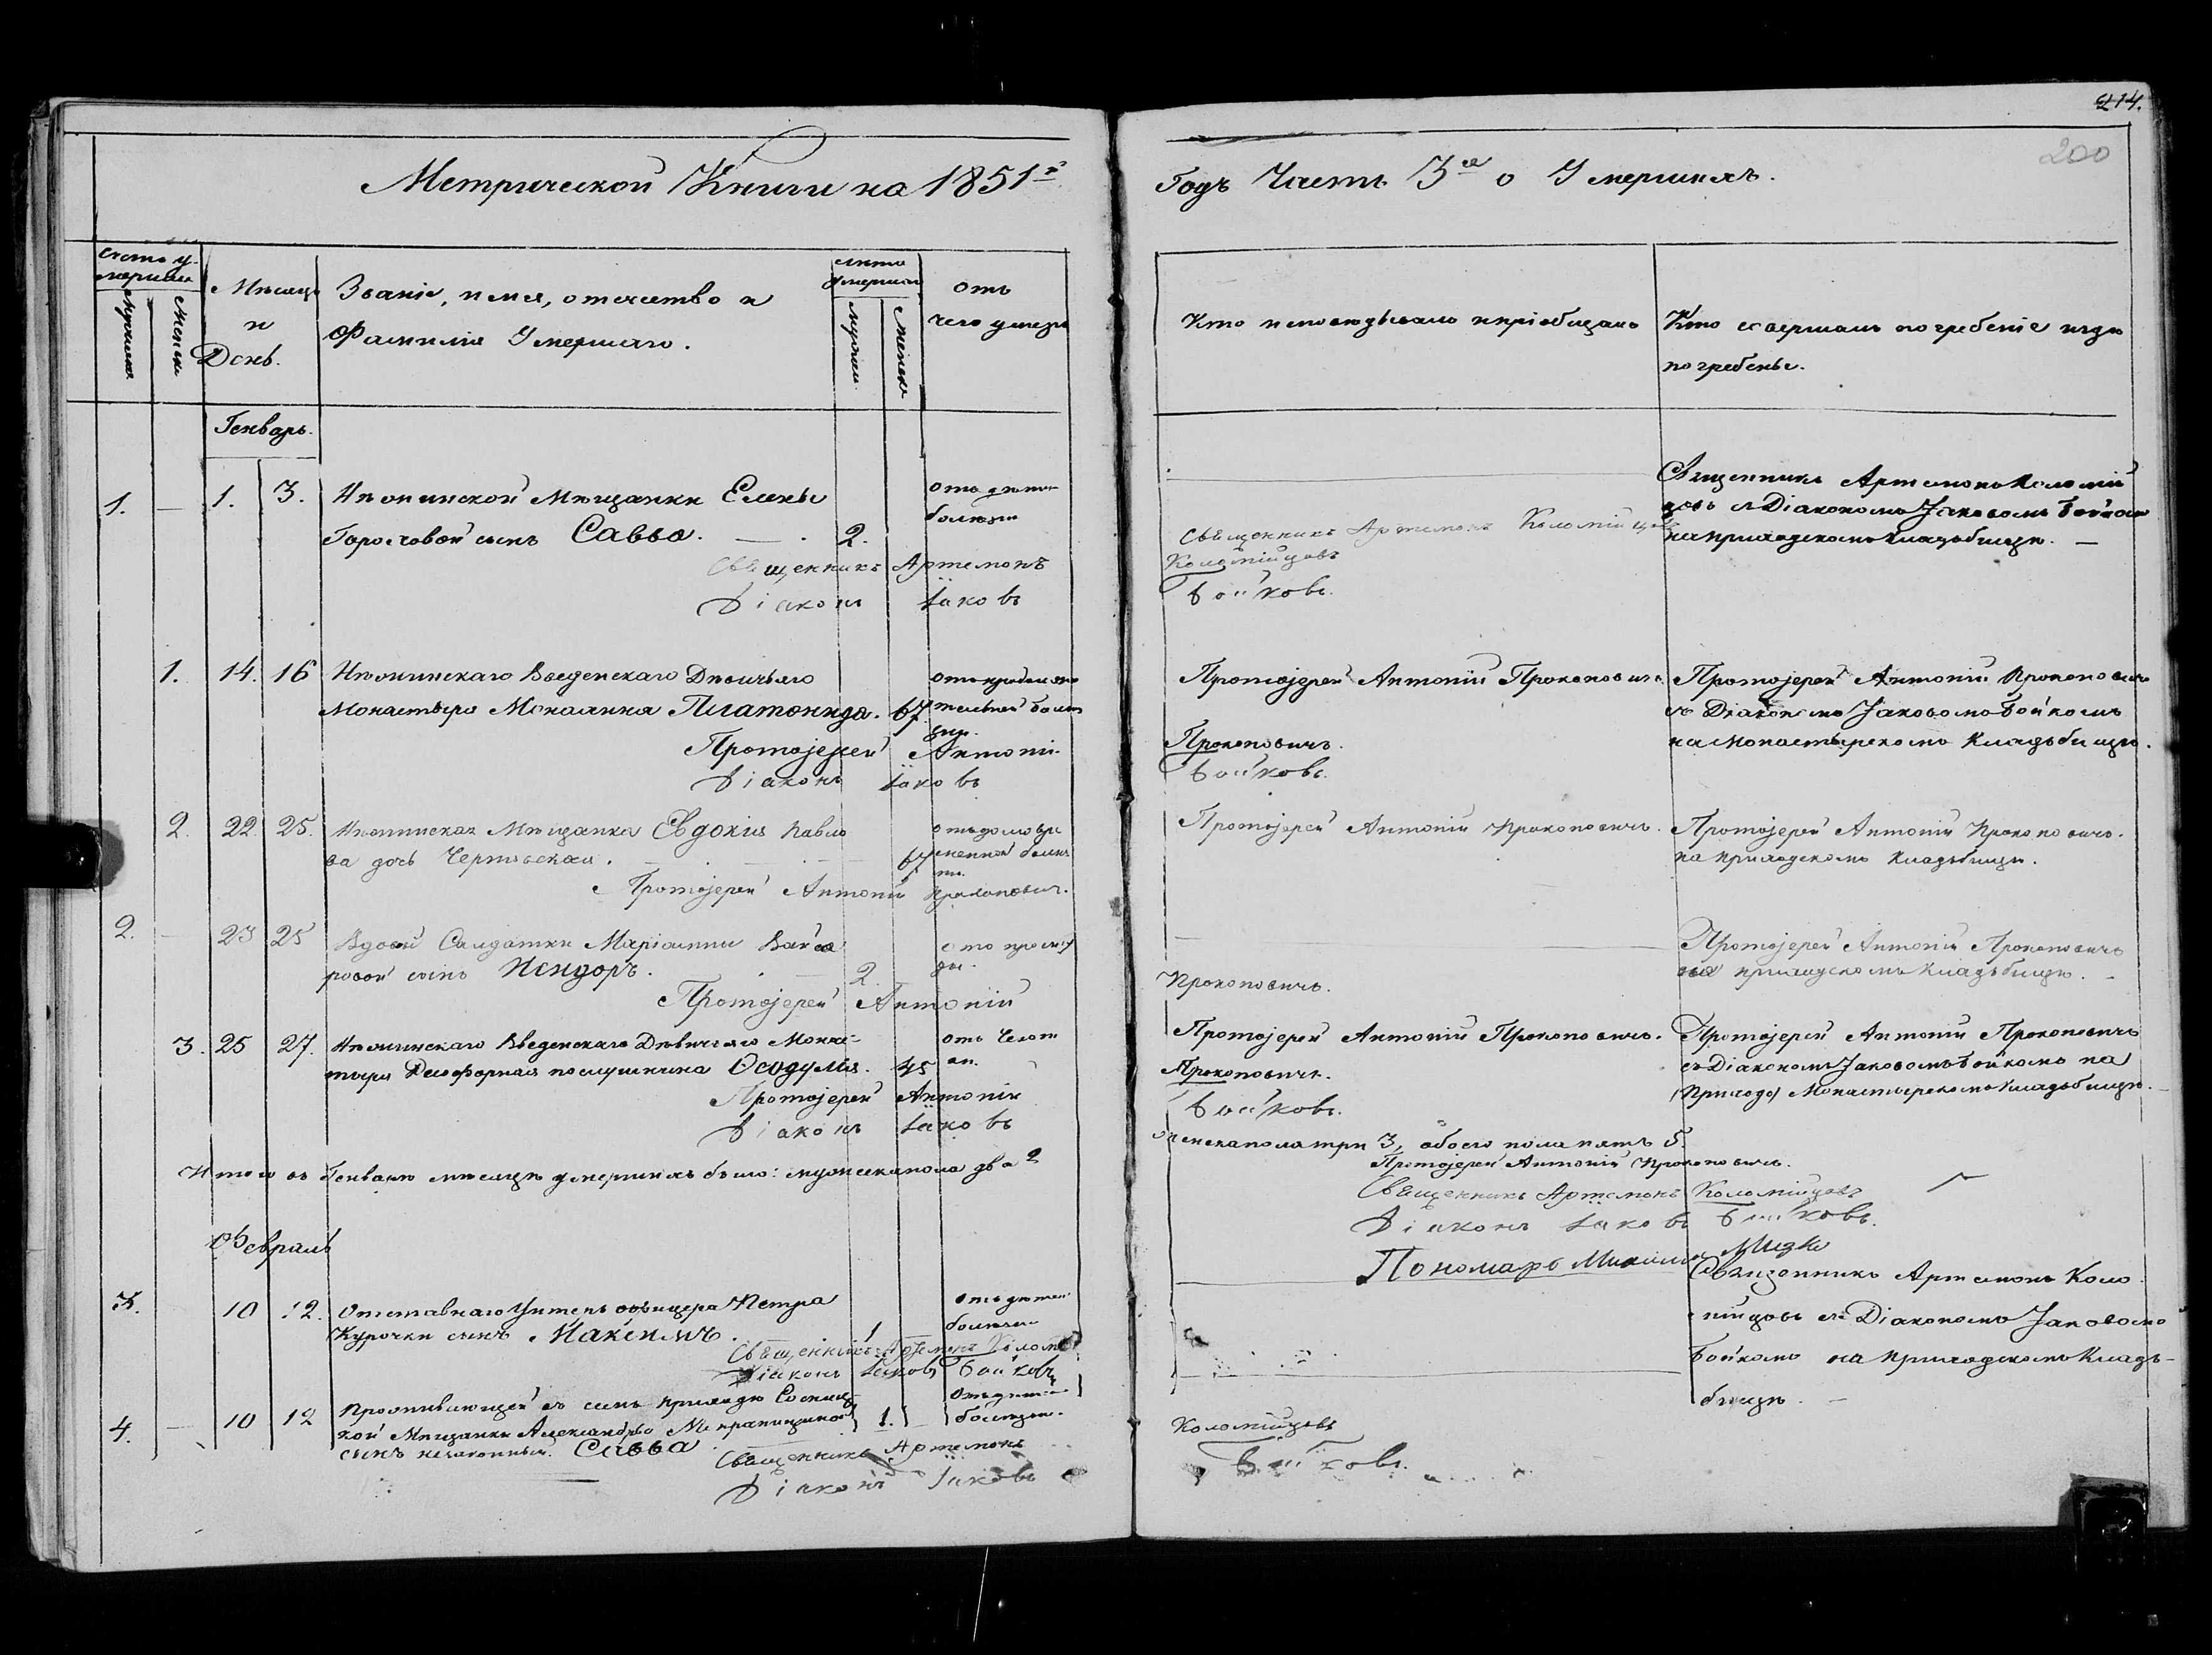 214.
200
Метрической Книги на 1851й
Годъ Часть 3я о Умершихъ.
Счетъ у-
мершихъ
Мужеска
Женска
Мѣсяцъ
и
День.
Званіе, имя, отечество и
Фамилія Умершаго.
Лѣта
Умершаго
Мужеск.
Женска
отъ
чего умеръ
Кто исповѣдывалъ и пріобщалъ
Кто совершалъ погребеніе и гдѣ
погребены.
Генварь.
1. — 1. 3. Нѣжинской Мѣщанки Елены
Горошовой сынъ Савва. — . 2.
отъ дѣтск
болѣзни
Священникъ Артемонъ Коломійцовъ
Священникъ Артемонъ Коломій
цовъ съ Діакономъ Іаковомъ Бойкомъ
на приходскомъ кладбищѣ. —
Священникъ Артемонъ Коломійцовъ
Діаконъ Іаковъ Бойковъ.
1. 14. 16 Нѣжинскаго Введенскаго Дѣвичьяго
Монастыря Монахиня Платонида. 67.
Протоіерей Антоній Прокоповичъ
Протоіерей Антоній Прокоповичъ
съ Діакономъ Іаковомъ Бойкомъ
на Монастырскомъ кладбищѣ.
Протоіерей Антоній Прокоповичъ.
Діаконъ Іаковъ Бойковъ.
2. 22. 25. Нѣжинская Мѣщанка Евдокія Павло
ва дочь 67
Протоіерей Антоній Прокоповичъ.
Протоіерей Антоній Прокоповичъ.
на приходскомъ кладбищѣ.
Протоіерей Антоній Прокоповичъ.
2. — 23 25 Вдовы Салдатки Маріанны
ровой сынъ Исидоръ. — 2.
отъ просту
ды.
Протоіерей Антоній Прокоповичъ
на приходскомъ кладбищѣ. —
Протоіерей Антоній Прокоповичъ.
3. 25 27. Нѣжинскаго Введенскаго Дѣвичьяго Монас-
тыря Рясофорная послушница Ѳеодулія. 45
отъ Чахот
ки.
Протоіерей Антоній Прокоповичъ.
Протоіерей Антоній Прокоповичъ
съ Діакономъ Іаковомъ Бойкомъ на
Монастырскомъ кладбищѣ. —
Протоіерей Антоній Прокоповичъ.
Діаконъ Іаковъ Бойковъ.
Итого въ Генварѣ мѣсяцѣ умершихъ было: мужеска пола два 2
женска пола три 3, обоего пола пять 5.
Протоіерей Антоній Прокоповичъ.
Священникъ Артемонъ Коломійцовъ
Діаконъ Іаковъ Бойковъ.
Пономарь Михаилъ
Февраль
3. 10 12. Отставнаго Унтеръ офицера Петра
Курочки сынъ Максимъ. 1
отъ дѣтск
болѣзни
Священникъ Артемонъ Коло
мійцовъ съ Діакономъ Іаковомъ
Бойкомъ на приходскомъ клад-
бищѣ. —
Священникъ Артемонъ Колом
Діаконъ Іаковъ Бойковъ
4. — 10 12 Проживающей въ семъ приходѣ
кой Мѣщанки Александры
сынъ незаконный Савва 1.
отъ дѣтск
болѣзни.
Священникъ Артемонъ Коломійцовъ
Діаконъ Іаковъ Бойковъ.